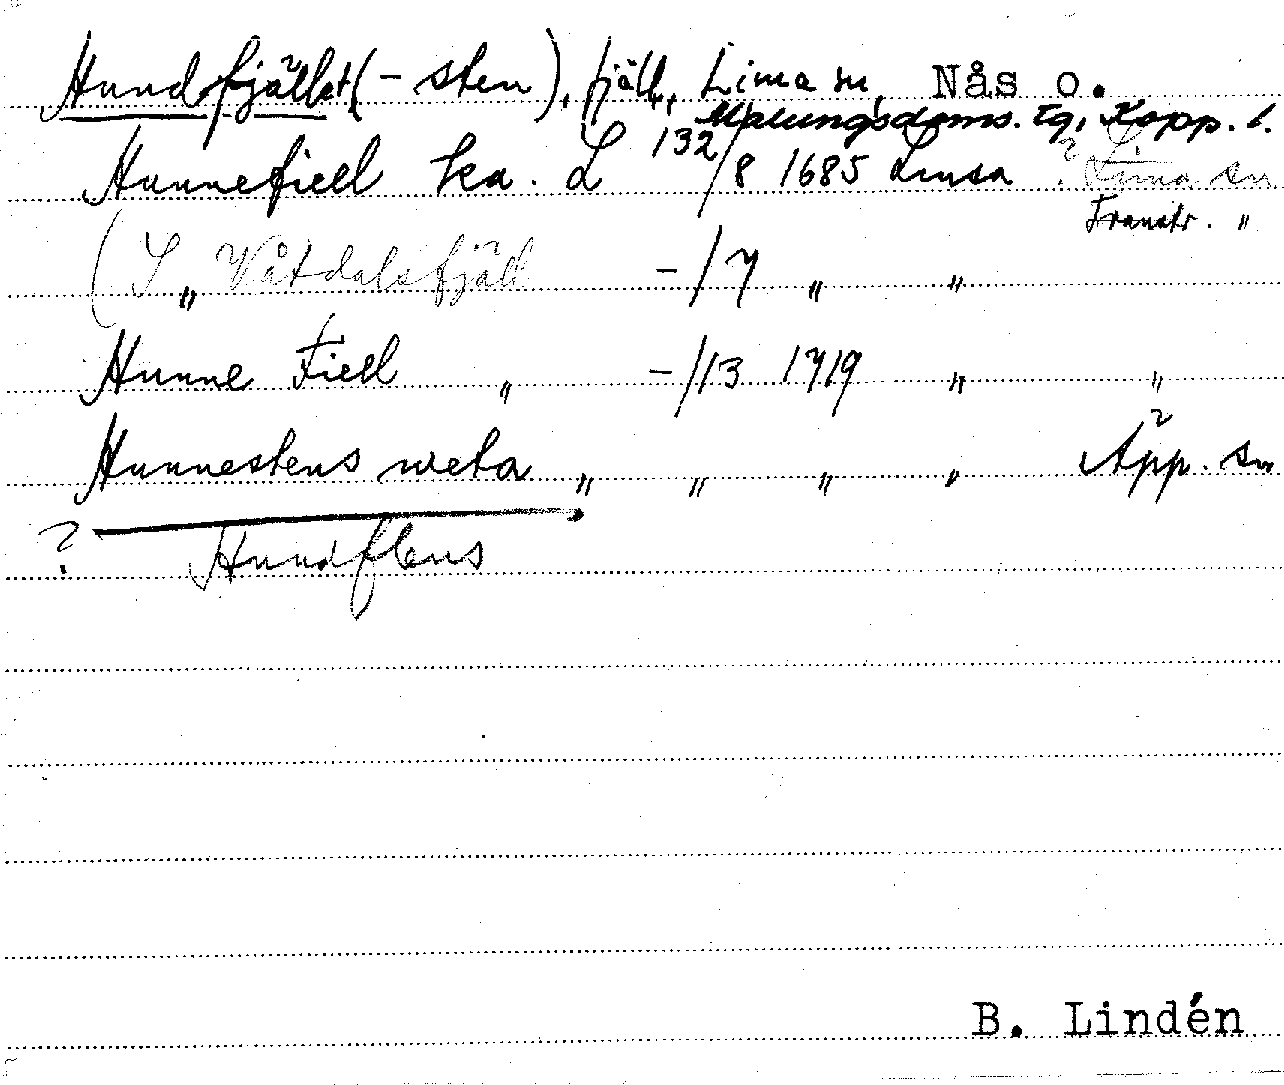 Hundfjället (- sten), fjäll, Lima sn, Nås o.
Malungsdoms. tg, Kopp. l.
Hunnefiell ka. L 132/8 1685 Lmsa ? Lima sn
Transtr. "
( S " Våtdalsfjäll -/7 " "
Hunne Fiell " -/13 1719 " "
Hunnestens weta " " " " Äpp. sn
? Hundflens
B. Lindén